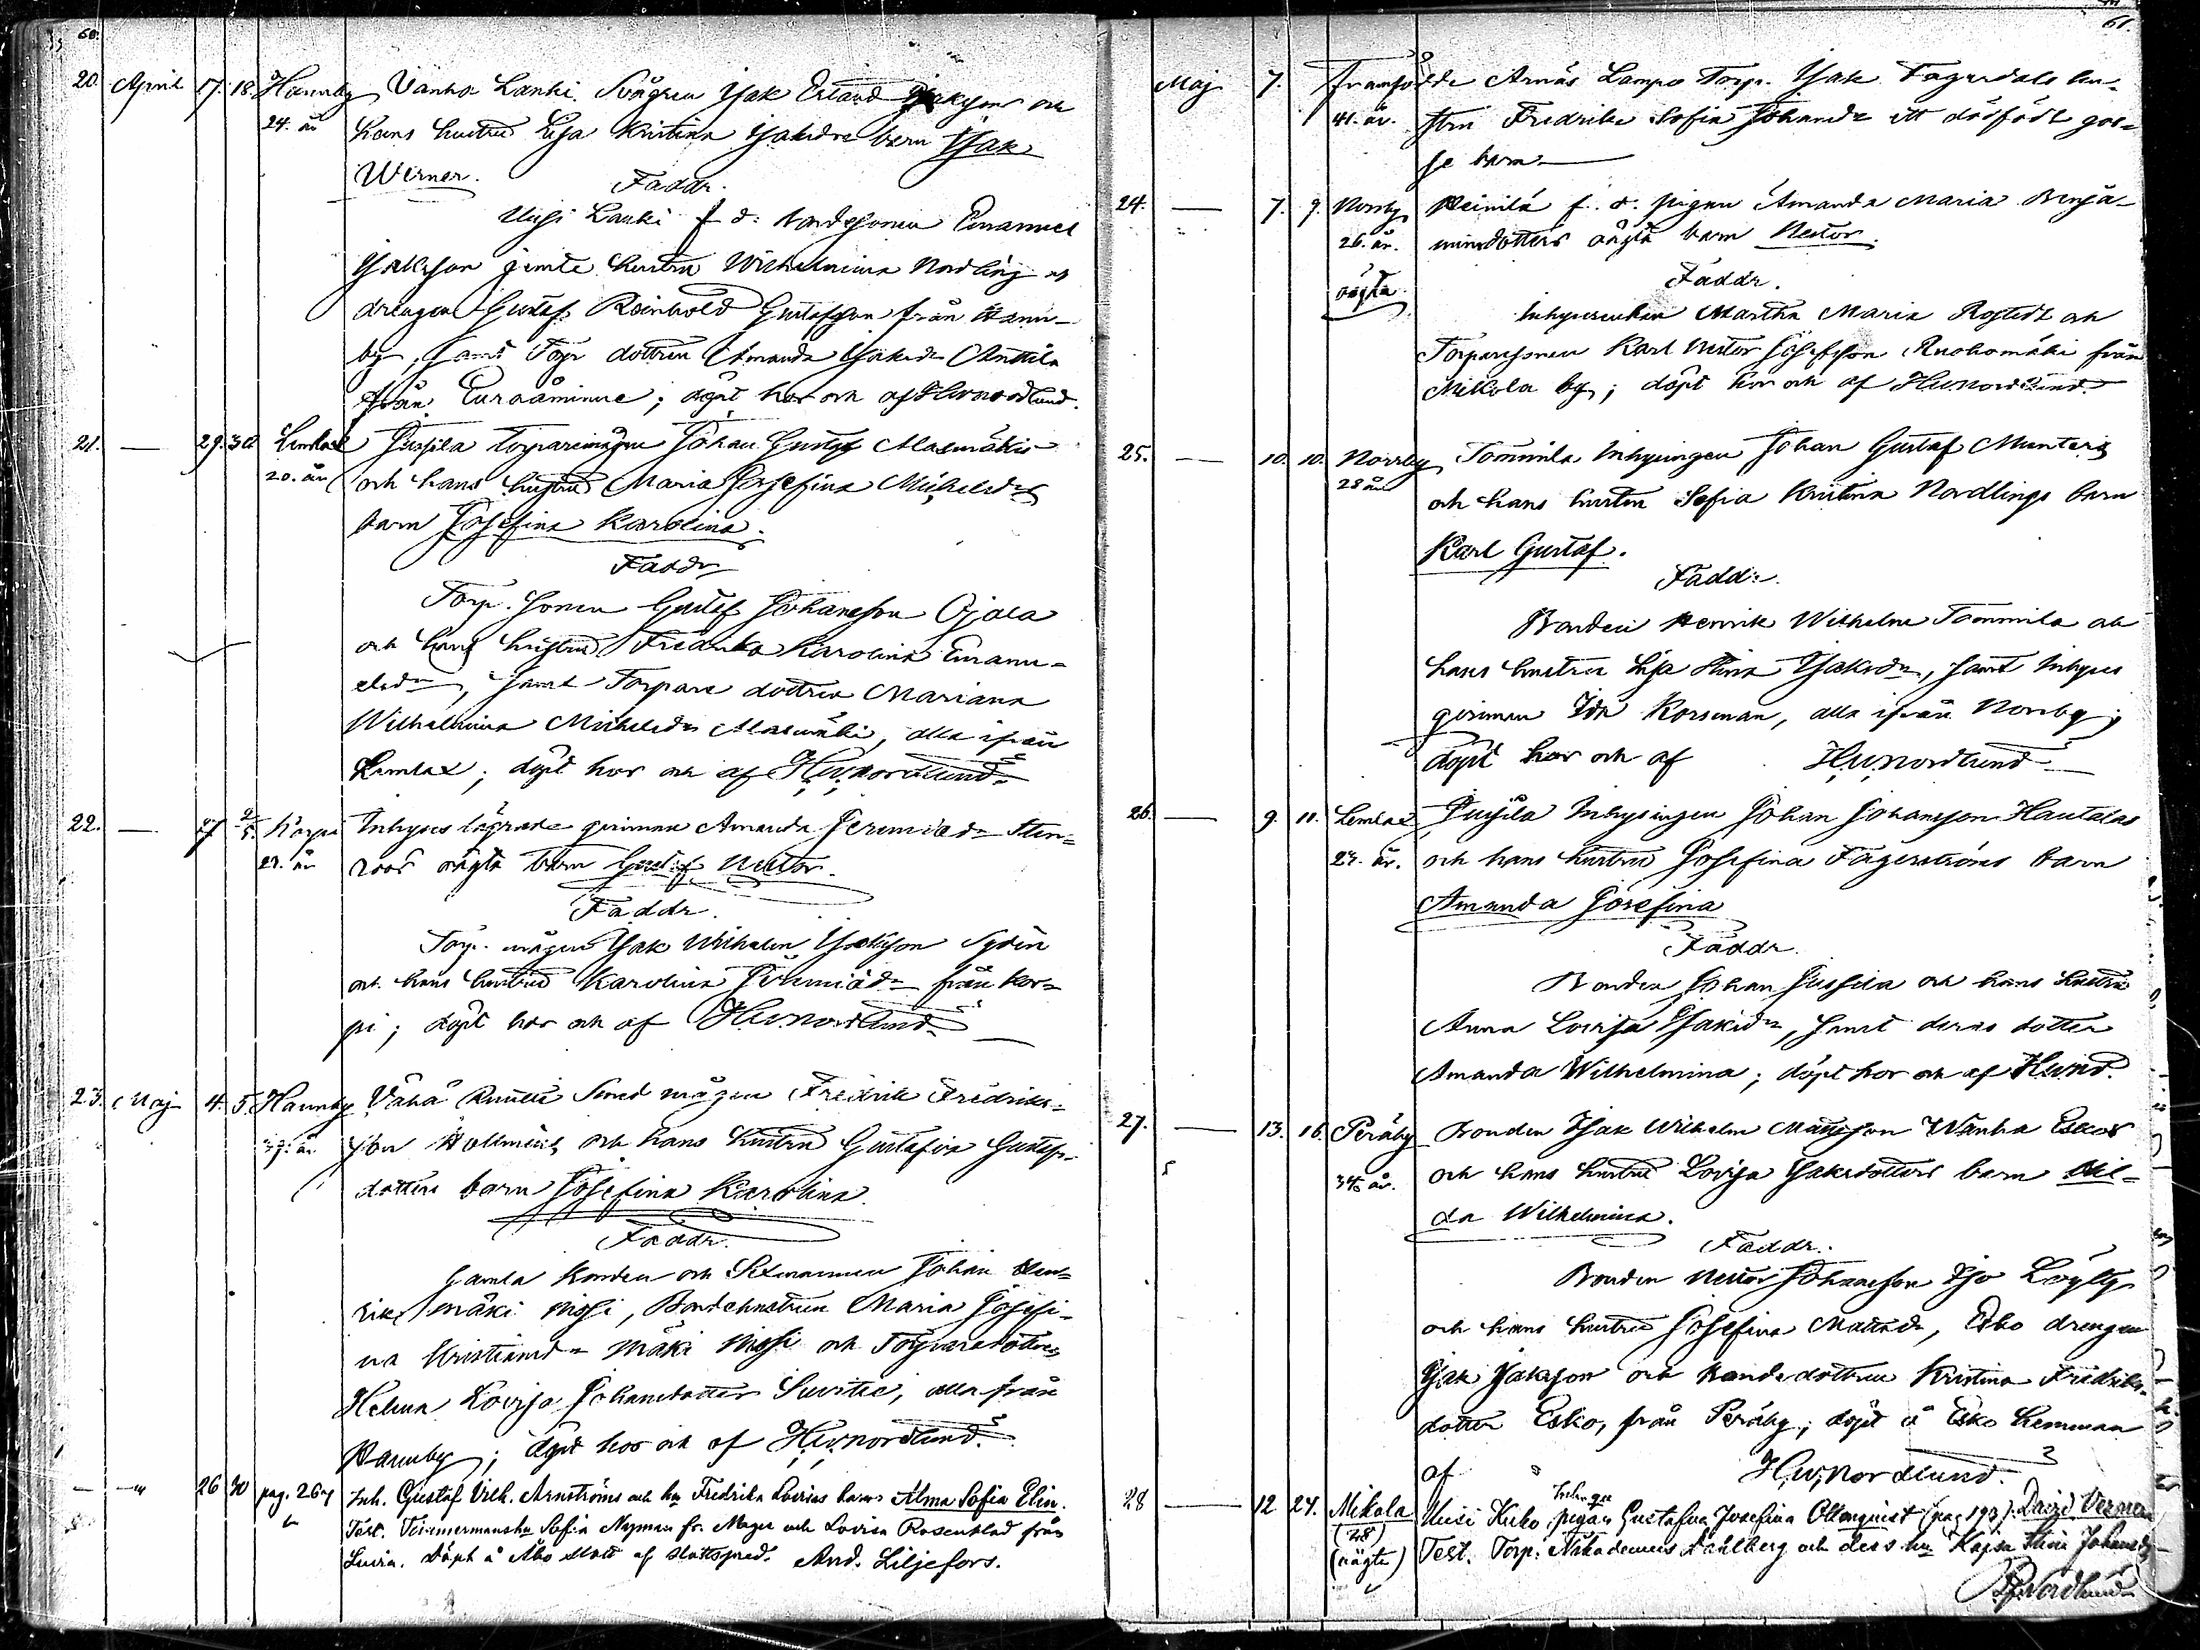 60.
20. April 17. 18. Hannby Vanha Lanki. Svågren Isak Erland Isaksson och
24. år hans hustru Lisa Kristina Isaksdrs barn Isak
Werner.
Faddr.
Uusi Lanki f. d. bondesonen Emanuel
Isaksson jemte hustru Wilhelmina Nordling och
drengen Gustaf Reinhold Gustafsson från Hann-
by, samt Torp dottren Amanda Isaksdr Anttila
från Euraåminne; döpt hos och af HWnordlund.
21. — 29. 30 Lemlax Jussila Torparemågen Johan Gustaf Masumäkis
20. år och hans hustru Maria Josefina Michelsdrs
barn Josefina Karolina.
Faddr
Torp. sonen Gustaf Johansson Ojala
och hans hustru Fredrika Karolina Emanu-
elsdr, samt Torpare dottren Mariana
Wilhelmina Michelsdr Masumäki, alla ifrån
Lemlax; döpt hos och af HWnordlund
22. — 27 2/5. Korpi Inhyses lägrade qvinnan Amanda Jeremiadr Sten-
23. år roos oägta barn Gustaf Nestor.
Faddr.
Torp. mågen Isak Wilhelm Isaksson Sydén
och hans hustru Karolina Jeremiadr från Kor-
pi; döpt hos och af HWnordlund
23. Maj 4. 5. Hannby Vähä Knuuti Smed mågen Fredrik Fredriks-
år son Hollméns och hans hustru Gustafva Gustafs-
dotters barn Josefina Karolina.
Faddr.
Gamla bonden och Sexmannen Johan Hen-
rik Mäki Nissi, Bondehustrun Maria Josefi-
na Kristiansdr Mäki Nissi och Torparedottren
Helena Lovisa Johansdotter Suvitie, alla från
Hannby; döpt hos och af HWnordlund.
— —"— 26 30 pag. 267 Inh. Gustaf Vilh. Arnströms och hu Fredrika Lovisas barn Alma Sofia Elin.
Test. Timmermanshu Sofia Nyman fr. Mager och Lovisa Rosenblad från
Luvia. Döpt å Åbo slott af slottspred. And. Liljefors.
61.
Maj 7. Framfödde Arnäs Lampo Torp. Isak Fagerdals hu-
41. år. strun Fredrika Sofia Johansdr ett dödfödt gos-
se barn —
24. — 7. 9. Norrby Heinilä f. d. pigan Amanda Maria Benja-
26. år. minsdotters oägta barn Nestor.
oägta Faddr.
Inhysesenkan Martha Maria Rostedt och
Torparesonen Karl Nestor Josefsson Ruohomäki från
Mikola by; döpt hos och af HWnordlund
25. — 10. 10. Norrby Tommila Inhysingen Johan Gustaf Munters
28 år och hans hustru Sofia Kristina Nordlings barn
Karl Gustaf.
Fadd:r.
Bonden Henrik Wilhelm Tommila och
hans hustru Lisa Stina Isaksdr, samt Inhyses
qvinnan Ida Korsman, alla ifrån Norrby;
döpt hos och af HWnordlund
26. — 9. 11. Lemlax Jussila Inhysingen Johan Johansson Hautalas
27. år. och hans hustru Josefina Fagerströms barn
Amanda Josefina
Faddr.
Bonden Johan Jussila och hans hustru
Anna Lovisa Isaksdr, samt deras dotter
Amanda Wilhelmina; döpt hos och af HWnd.
27. — 13. 16. Peräby Bonden Isak Wilhelm Mattsson Wanha Eskos
34 år. och hans hustru Lovisa Isaksdotters barn Hil-
da Wilhelmina.
Faddr.
Bonden Nestor Johansson Iso Löyty
och hans hustru Josefina Mattsdr, Esko drengen
Isak Isaksson och bondedottren Kristina Fredriks-
dotter Esko, från Peräby; döpt å Esko hemman
af HWnordlund.
28 — 12 27. Mikola Uusi Kuko pigan Gustafva Josefina Ollonquist (pag 193) David Verner
(28) (oägta) Test. Torp. Nikodemus Dahlberg och dess hu Kajsa Stina Johansdr
Nordlund